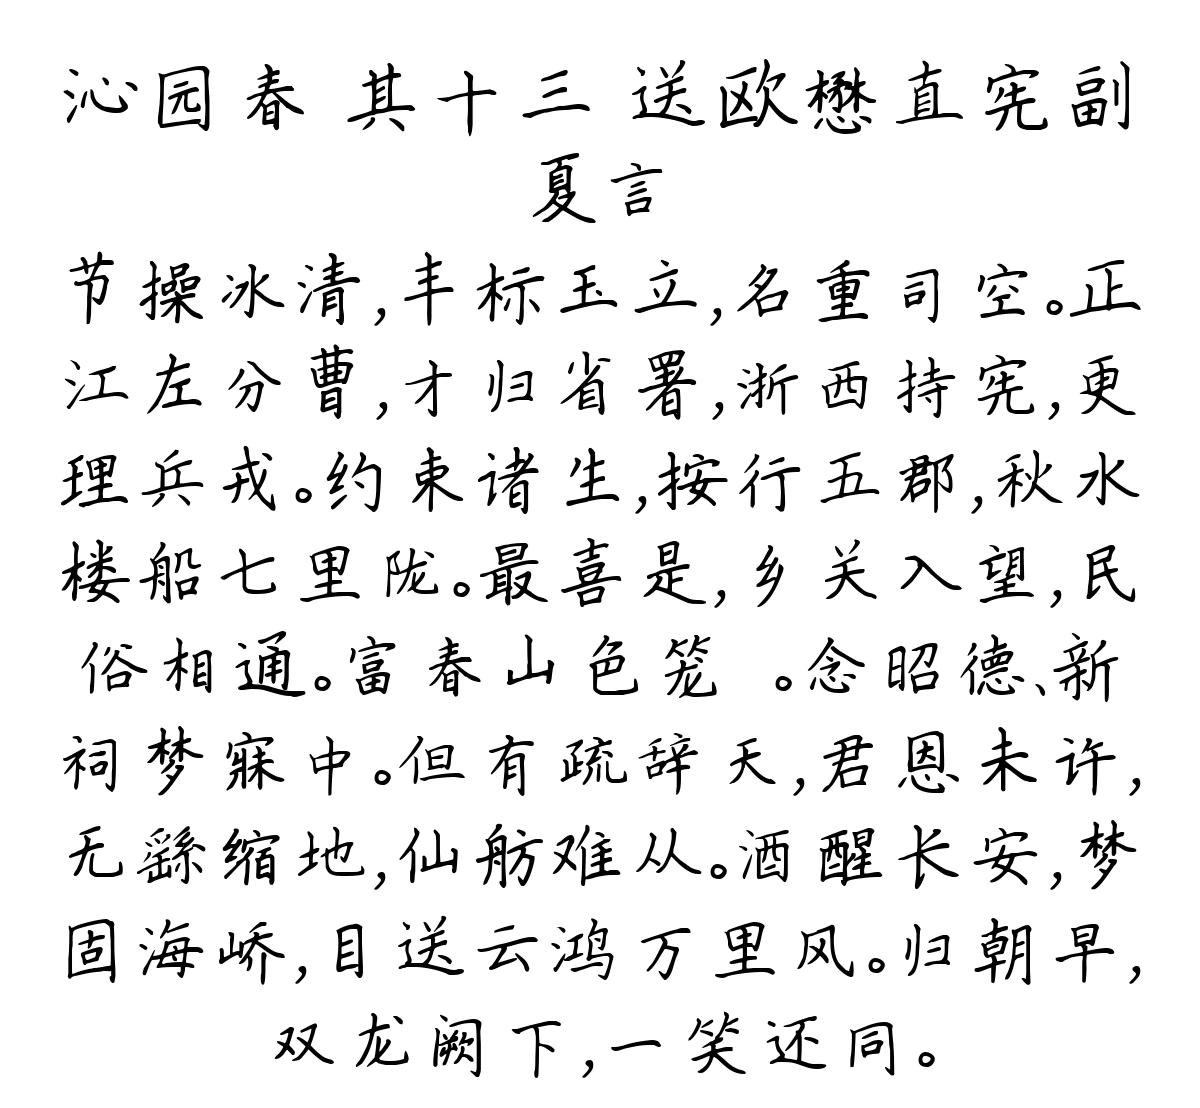 沁园春 其十三 送欧懋直宪副
夏言
节操冰清,丰标玉立,名重司空。正
江左分曹,才归省署,浙西持宪,更
理兵戎。约束诸生,按行五郡,秋水
楼船七里陇。最喜是,乡关入望,民
俗相通。富春山色笼 。念昭德、新
祠梦寐中。但有疏辞天,君恩未许,
无繇缩地,仙舫难从。酒醒长安,梦
固海峤,目送云鸿万里风。归朝早,
双龙阙下,一笑还同。